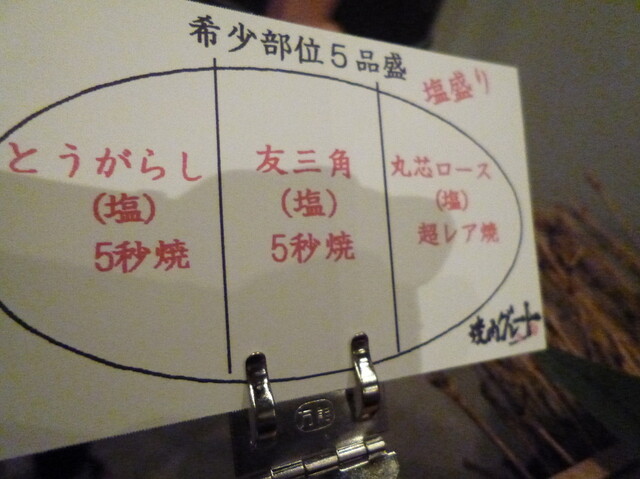 希少部位5品盛
塩盛り
とうがらし
(塩)
5秒焼
友三角
(塩)
5秒焼
丸芯ロース
(塩)
超レア焼
焼肉グレート